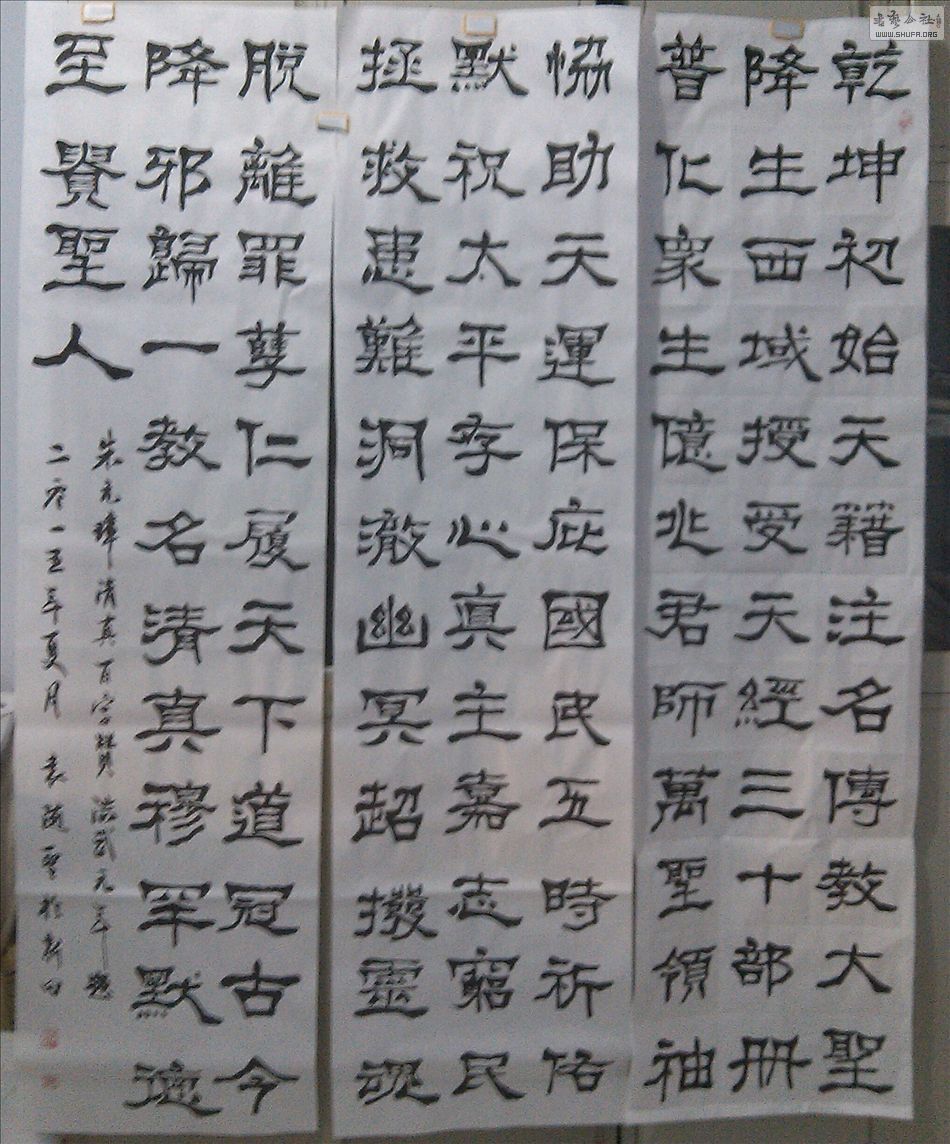 乾坤初始天籍注名傳教大聖
降生西域授受天經三十部册
普化衆生億兆君師萬聖領袖
恊助天運保庇國民五時祈佑
默祝太平存心真主嘉志窮民
拯救患難洞澈幽冥超撥靈魂
脱離罪孽仁履天下道冠古今
降邪歸一教名清真穆罕默德
至貴聖人
朱元璋清真百字贊 洪武元年題
二零一五年夏月 袁
書藝公社
WWW.SHUFA.ORG